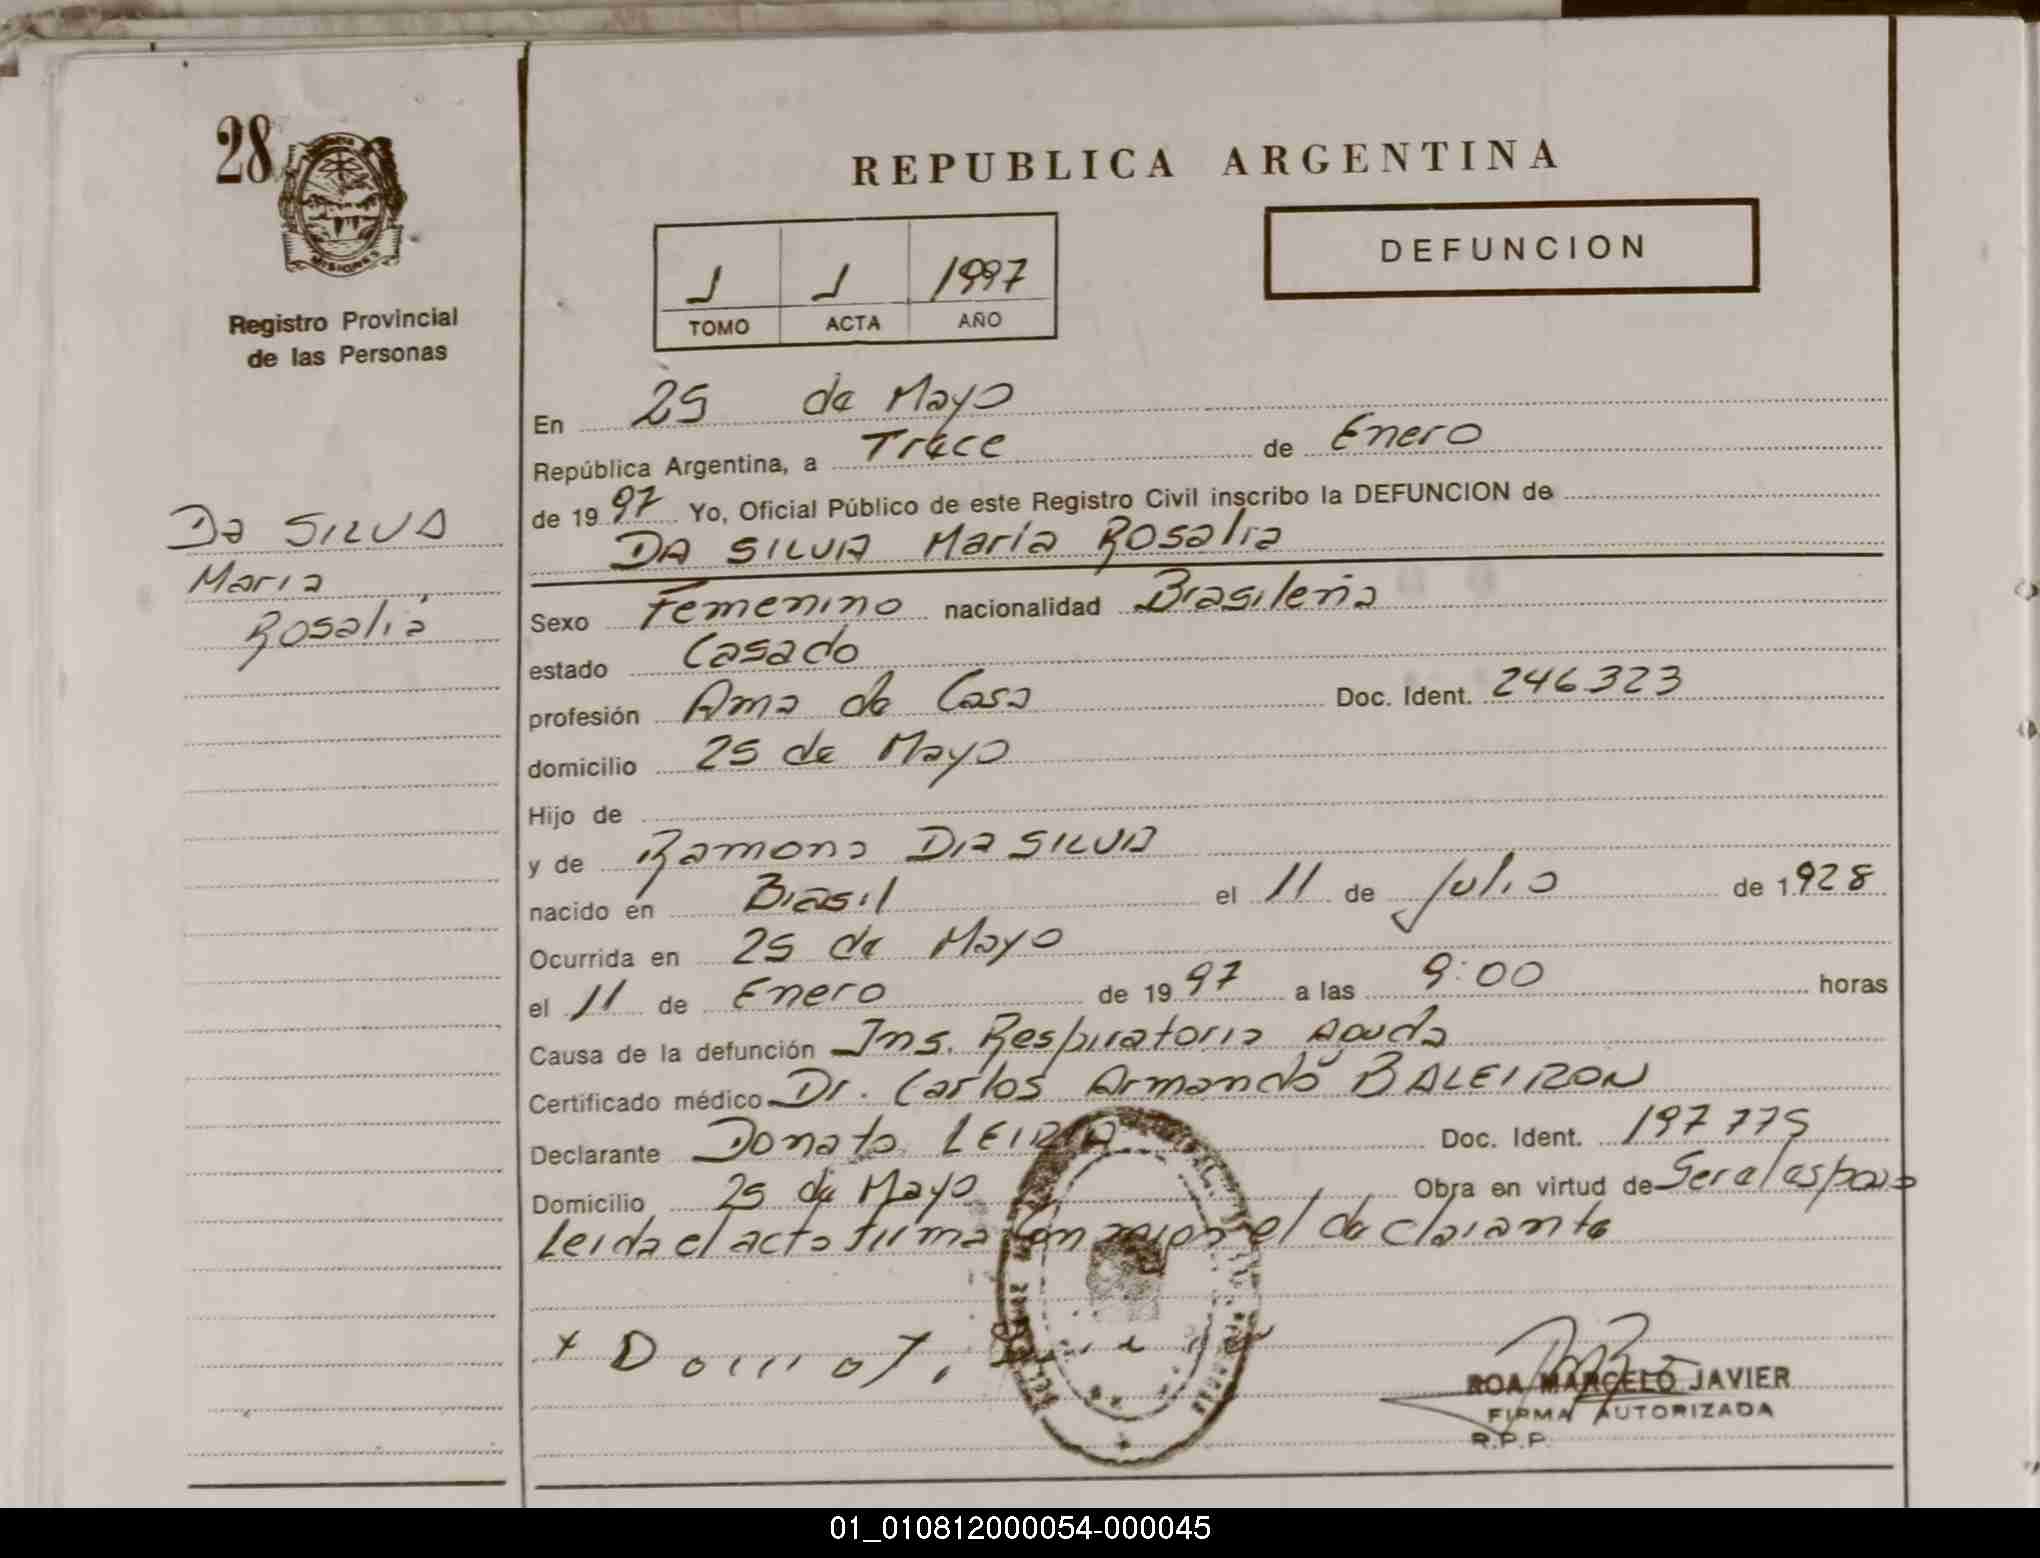 28
MISIONES
Registro Provincial
de las Personas
DA SILVA
Maria
Rosalia
REPUBLICA ARGENTINA
DEFUNCION
1 1 1997
TOMO ACTA AÑO
En 25 de Mayo
República Argentina, a Trece de Enero
de 1997 Yo, Oficial Público de este Registro Civil inscribo la DEFUNCION de
DA SILVA María Rosalia
Sexo Femenino nacionalidad Brasileña
estado Casado
profesión Ama de Casa Doc. Ident. 246323
domicilio 25 de Mayo
Hijo de
y de Ramona DA SILVA
nacido en Brasil el 11 de Julio de 1928
Ocurrida en 25 de Mayo
el 11 de Enero de 1997 a las 9:00 horas
Causa de la defunción Ins. Respiratoria Aguda
Certificado médico Dr. Carlos Armando BALEIRON
Declarante Donato LEIRIA Doc. Ident. 197775
Domicilio 25 de Mayo Obra en virtud de Ser el esposo
Leida el acta firma con migo el declarante
ROA MARCELO JAVIER
FIRMA AUTORIZADA
R.P.P.
01_010812000054-000045